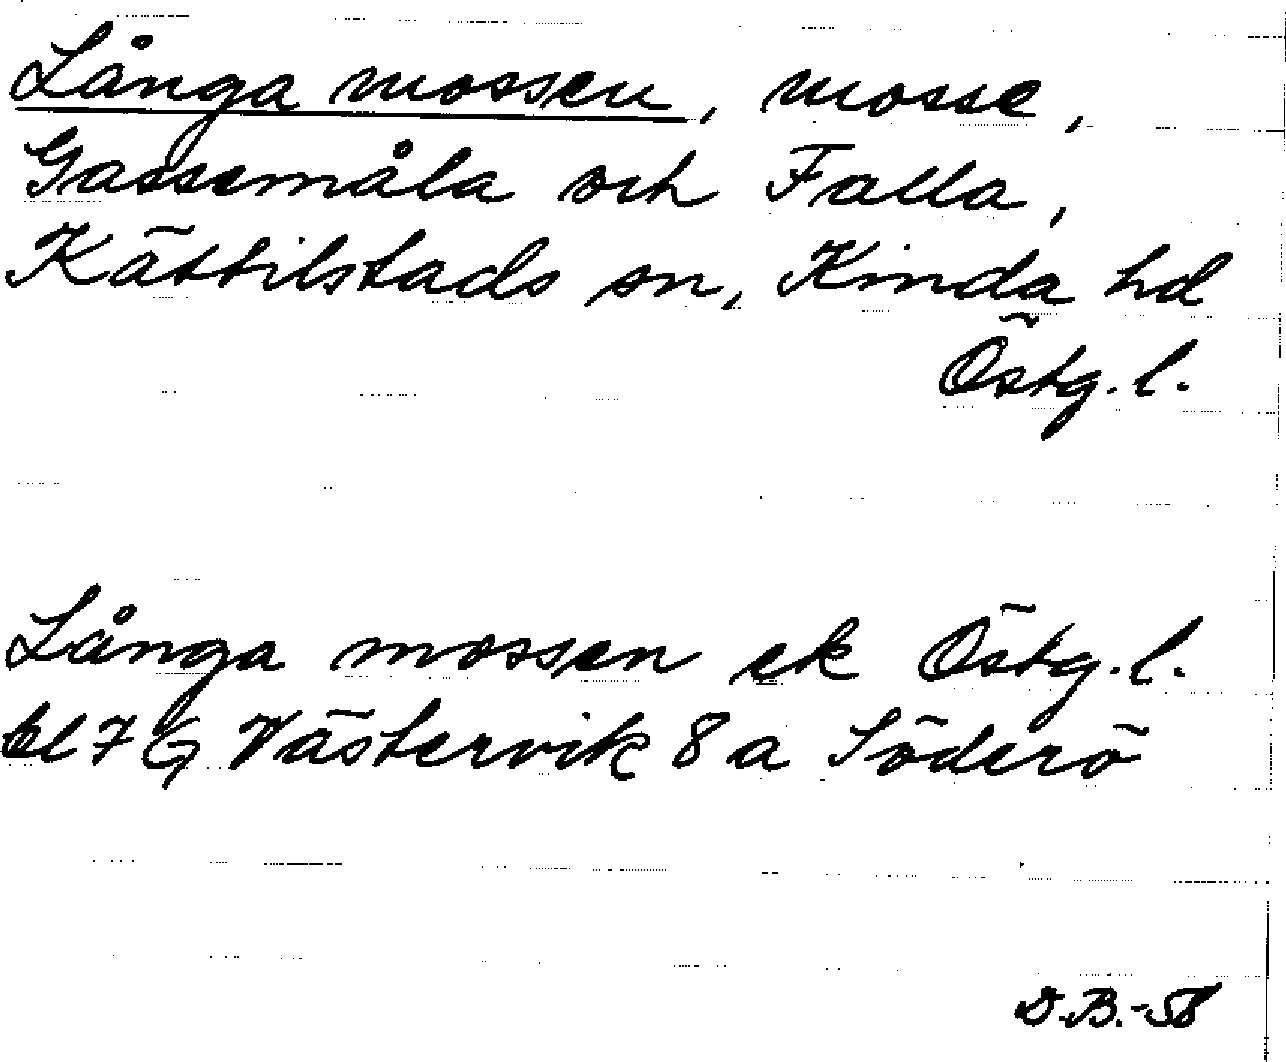 Långa mossen, mosse,
Gassemåla och Falla,
Kättilstads sn, Kinda hd
Östg. l.
Långa mossen ek Östg. l.
bl 7 G Västervik 8 a Söderö
D.B.-58